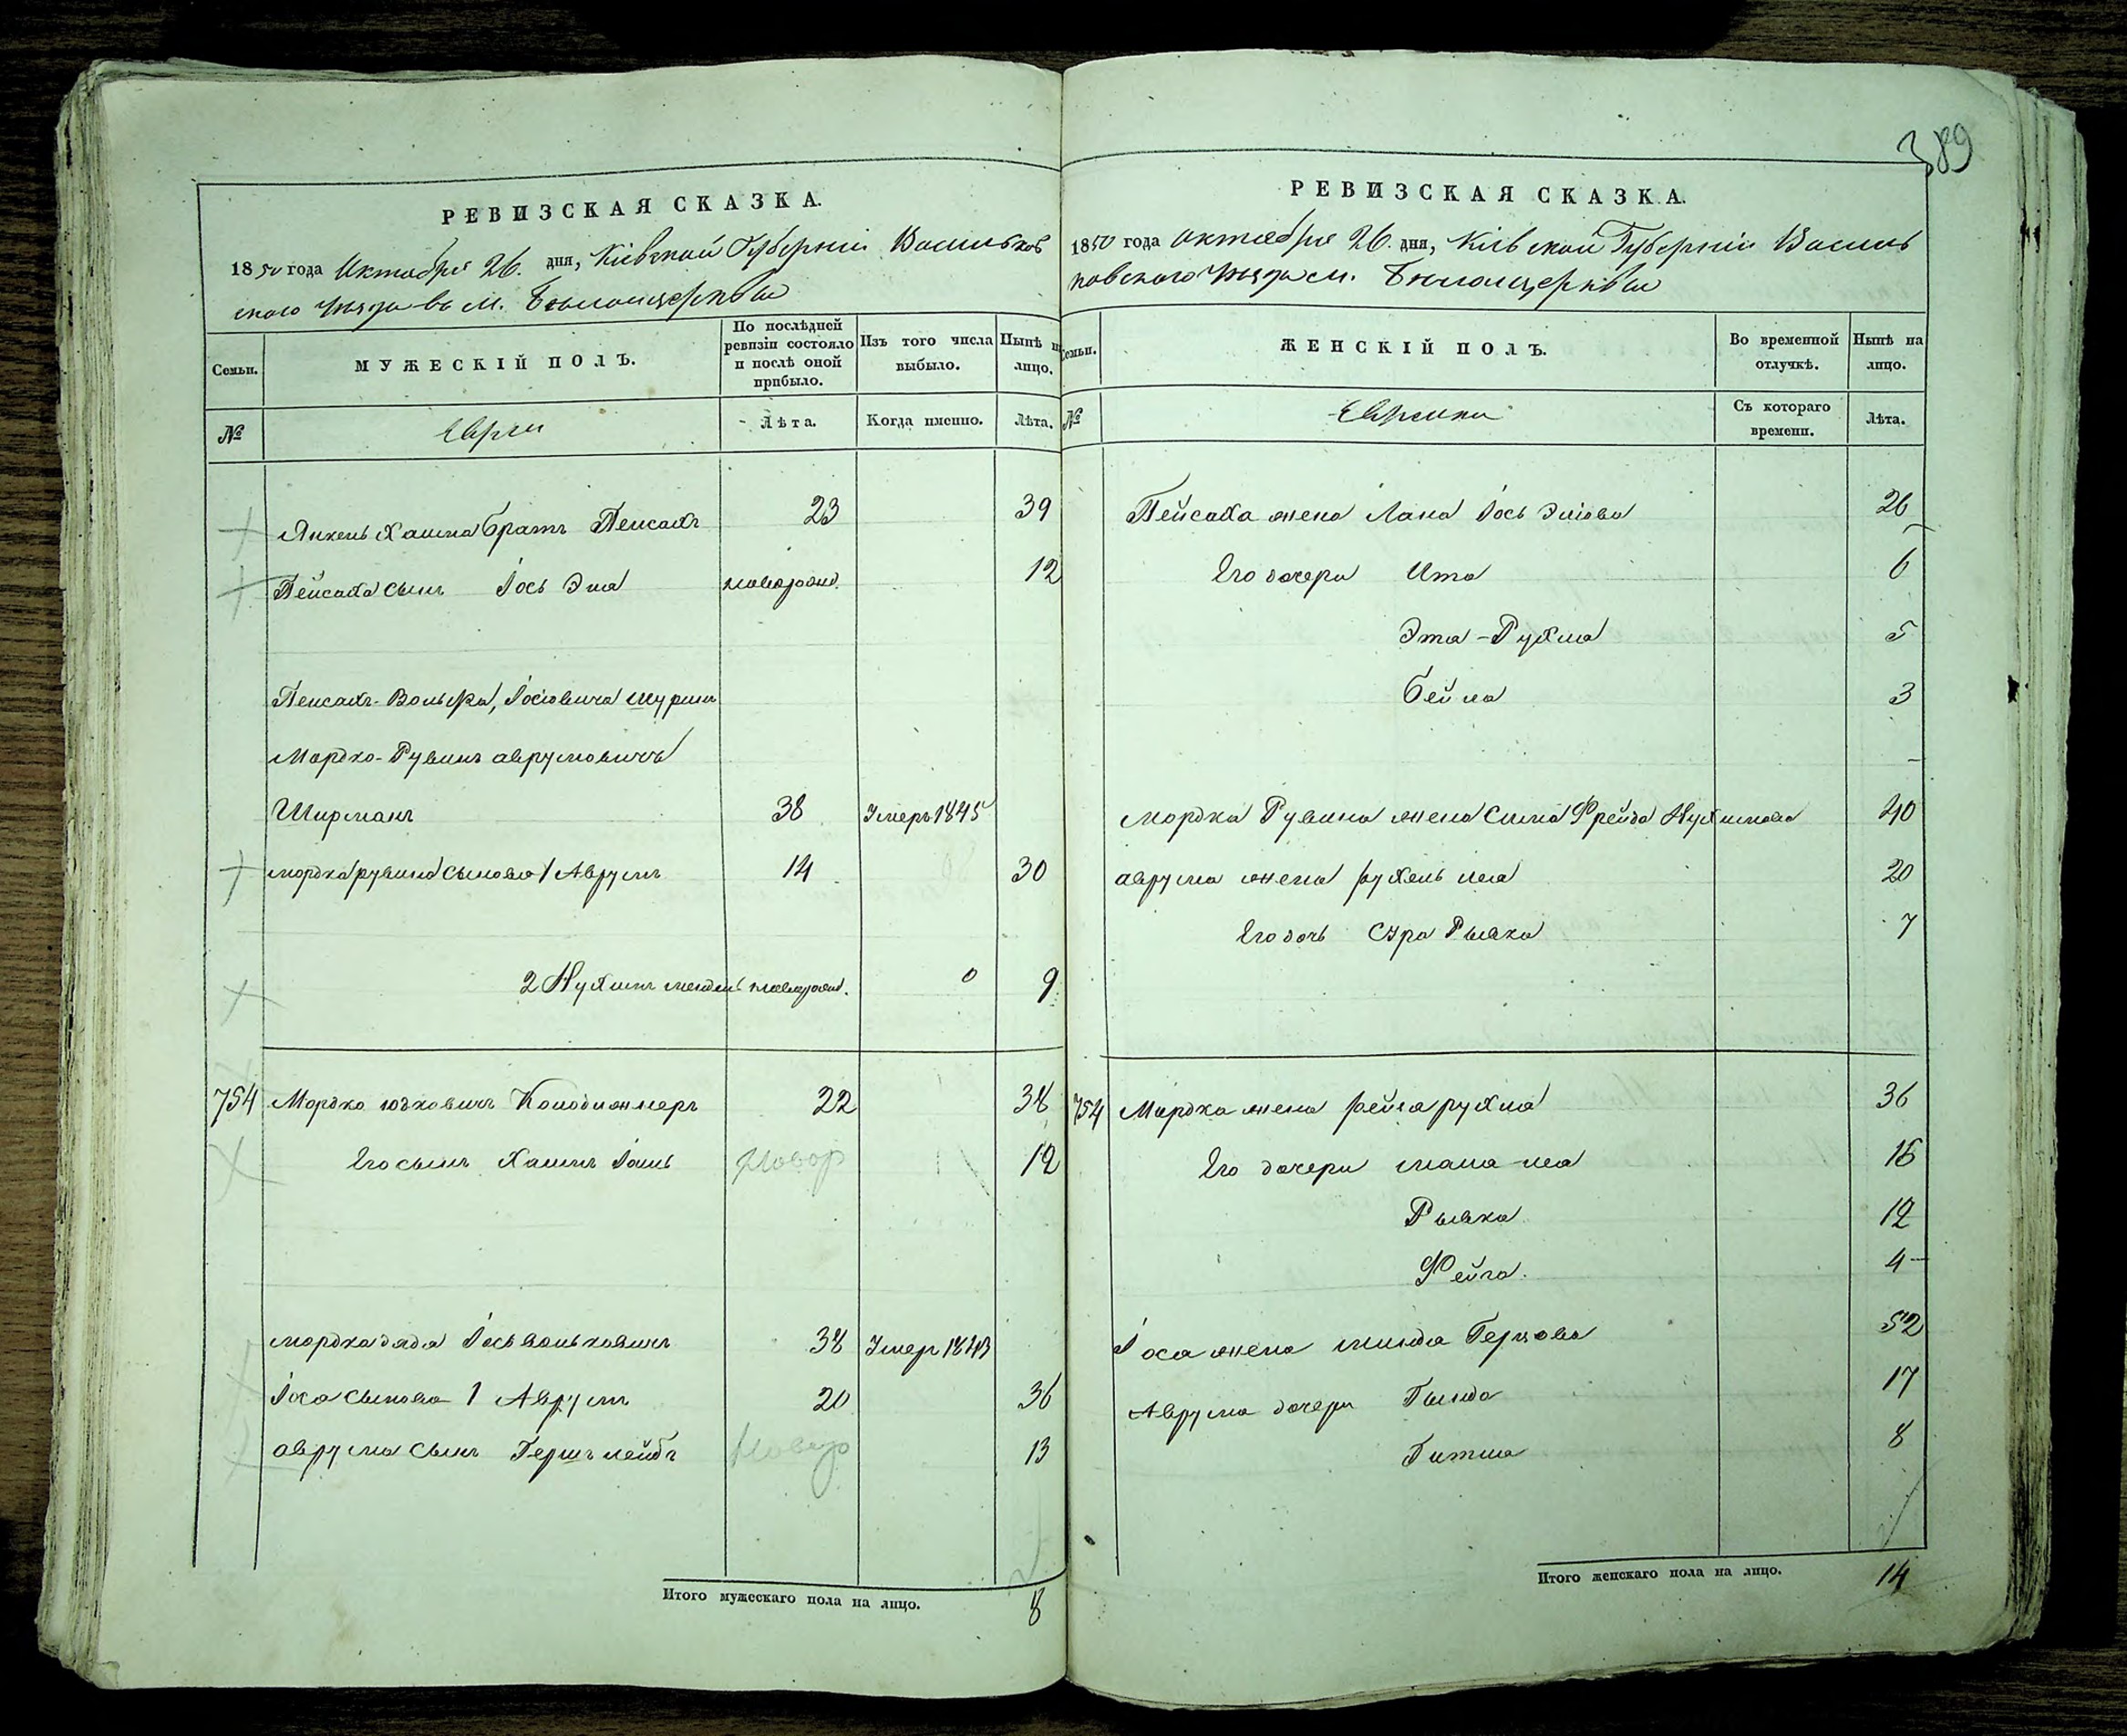 389
РЕВИЗСКАЯ СКАЗКА.
1850 года Октября 26. дня, Кіевской Губерніи Васильков
скаго Уѣзда въ м. Бѣлоцерквы
Семьи.
МУЖЕСКІЙ ПОЛЪ.
По послѣдней ревизіи состояло и послѣ оной прибыло.
Изъ того числа выбыло.
Нынѣ на лицо.
№
Евреи
Лѣта.
Когда именно.
Лѣта.
Янкель Хаима братъ Пейсахъ 23 39
Пейсаха сынъ Іось Эля новорожд. 12
Пейсахъ-Вольфа, Іосіовича шуринъ
Мордко-Рувинъ аврумовичъ
Ширманъ 38 Умеръ 1845
мордка рувина сыновья 1 Аврумъ 14 30
2 Нухимъ мендель новорожд. 9
754 Мордко юдковичъ Колодижнеръ 22 38
Его сынъ Хаимъ Іось новор 12
мордка дядя Іось вольковичъ 38 Умер 1843
Іося сыновья 1 Аврумъ 20 36
аврума сынъ Гершъ лейбъ новор 13
Итого мужескаго пола на лицо. 8
РЕВИЗСКАЯ СКАЗКА.
1850 года октября 26. дня, Кіевской Губерніи Василь
ковского Уѣзда м. Бѣлоцерквы
Семьи.
ЖЕНСКІЙ ПОЛЪ.
Во временной отлучкѣ.
Нынѣ на лицо.
№
Еврейки
Съ котораго времени.
Лѣта.
Пейсаха жена Хана Іось Эліова 26
Его дочери Ита 6
Эта-Рухля 5
бейла 3
мордка Рувина жена Сима Фрейда Нухимова 40
аврума жена рухель леа 20
Его дочь Сура Рывка 7
754 Мордка жена фейга рухля 36
Его дочери леа 16
Рывка 12
Фейга. 4
Іося жена Герцова 52
Аврума дочери Гинда 17
Гитля 8
Итого женскаго пола на лицо. 14